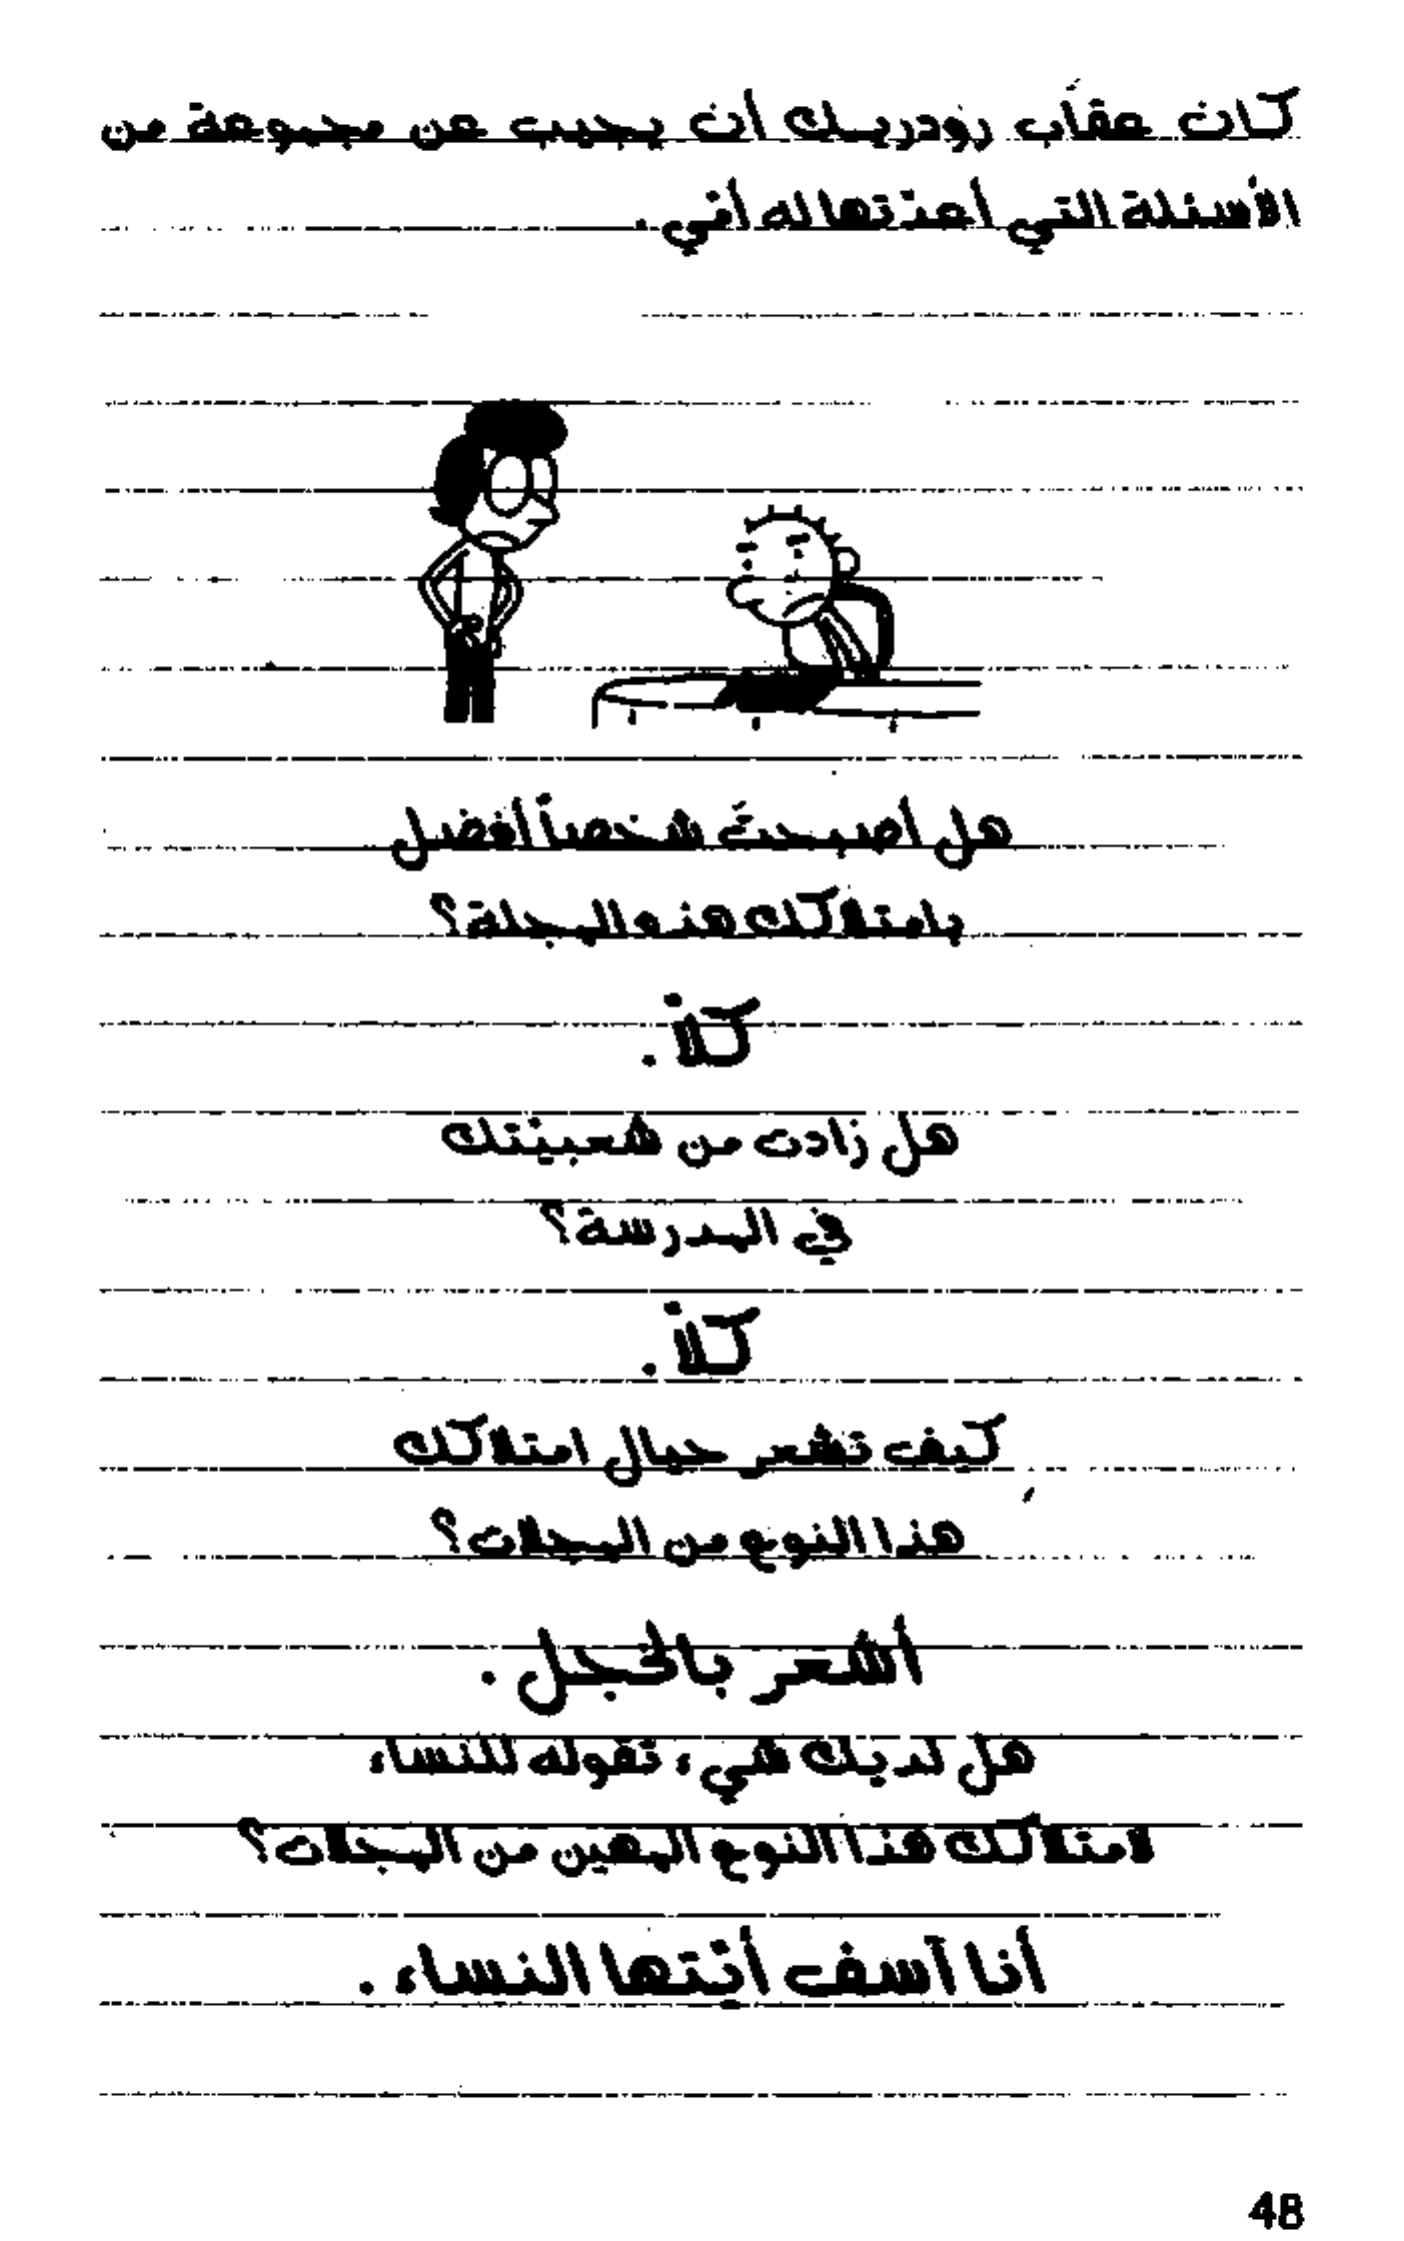 كان عقاب رودريك أن يجيب عن مجموعة من
الأسئلة التي أعدّتها له أمّي.
هل أصبحتَ شخصاً أفضل
بامتلاكك هذه المجلة؟
كلاّ.
هل زادت من شعبيّتك
في المدرسة؟
كلاّ.
كيف تشعر حيال امتلاكك
هذا النوع من المجلات؟
أشعر بالخجل.
هل لديك شيء تقوله للنساء
لامتلاكك هذا النوع المهين من المجلات؟
أنا آسف أيّتها النساء.
48